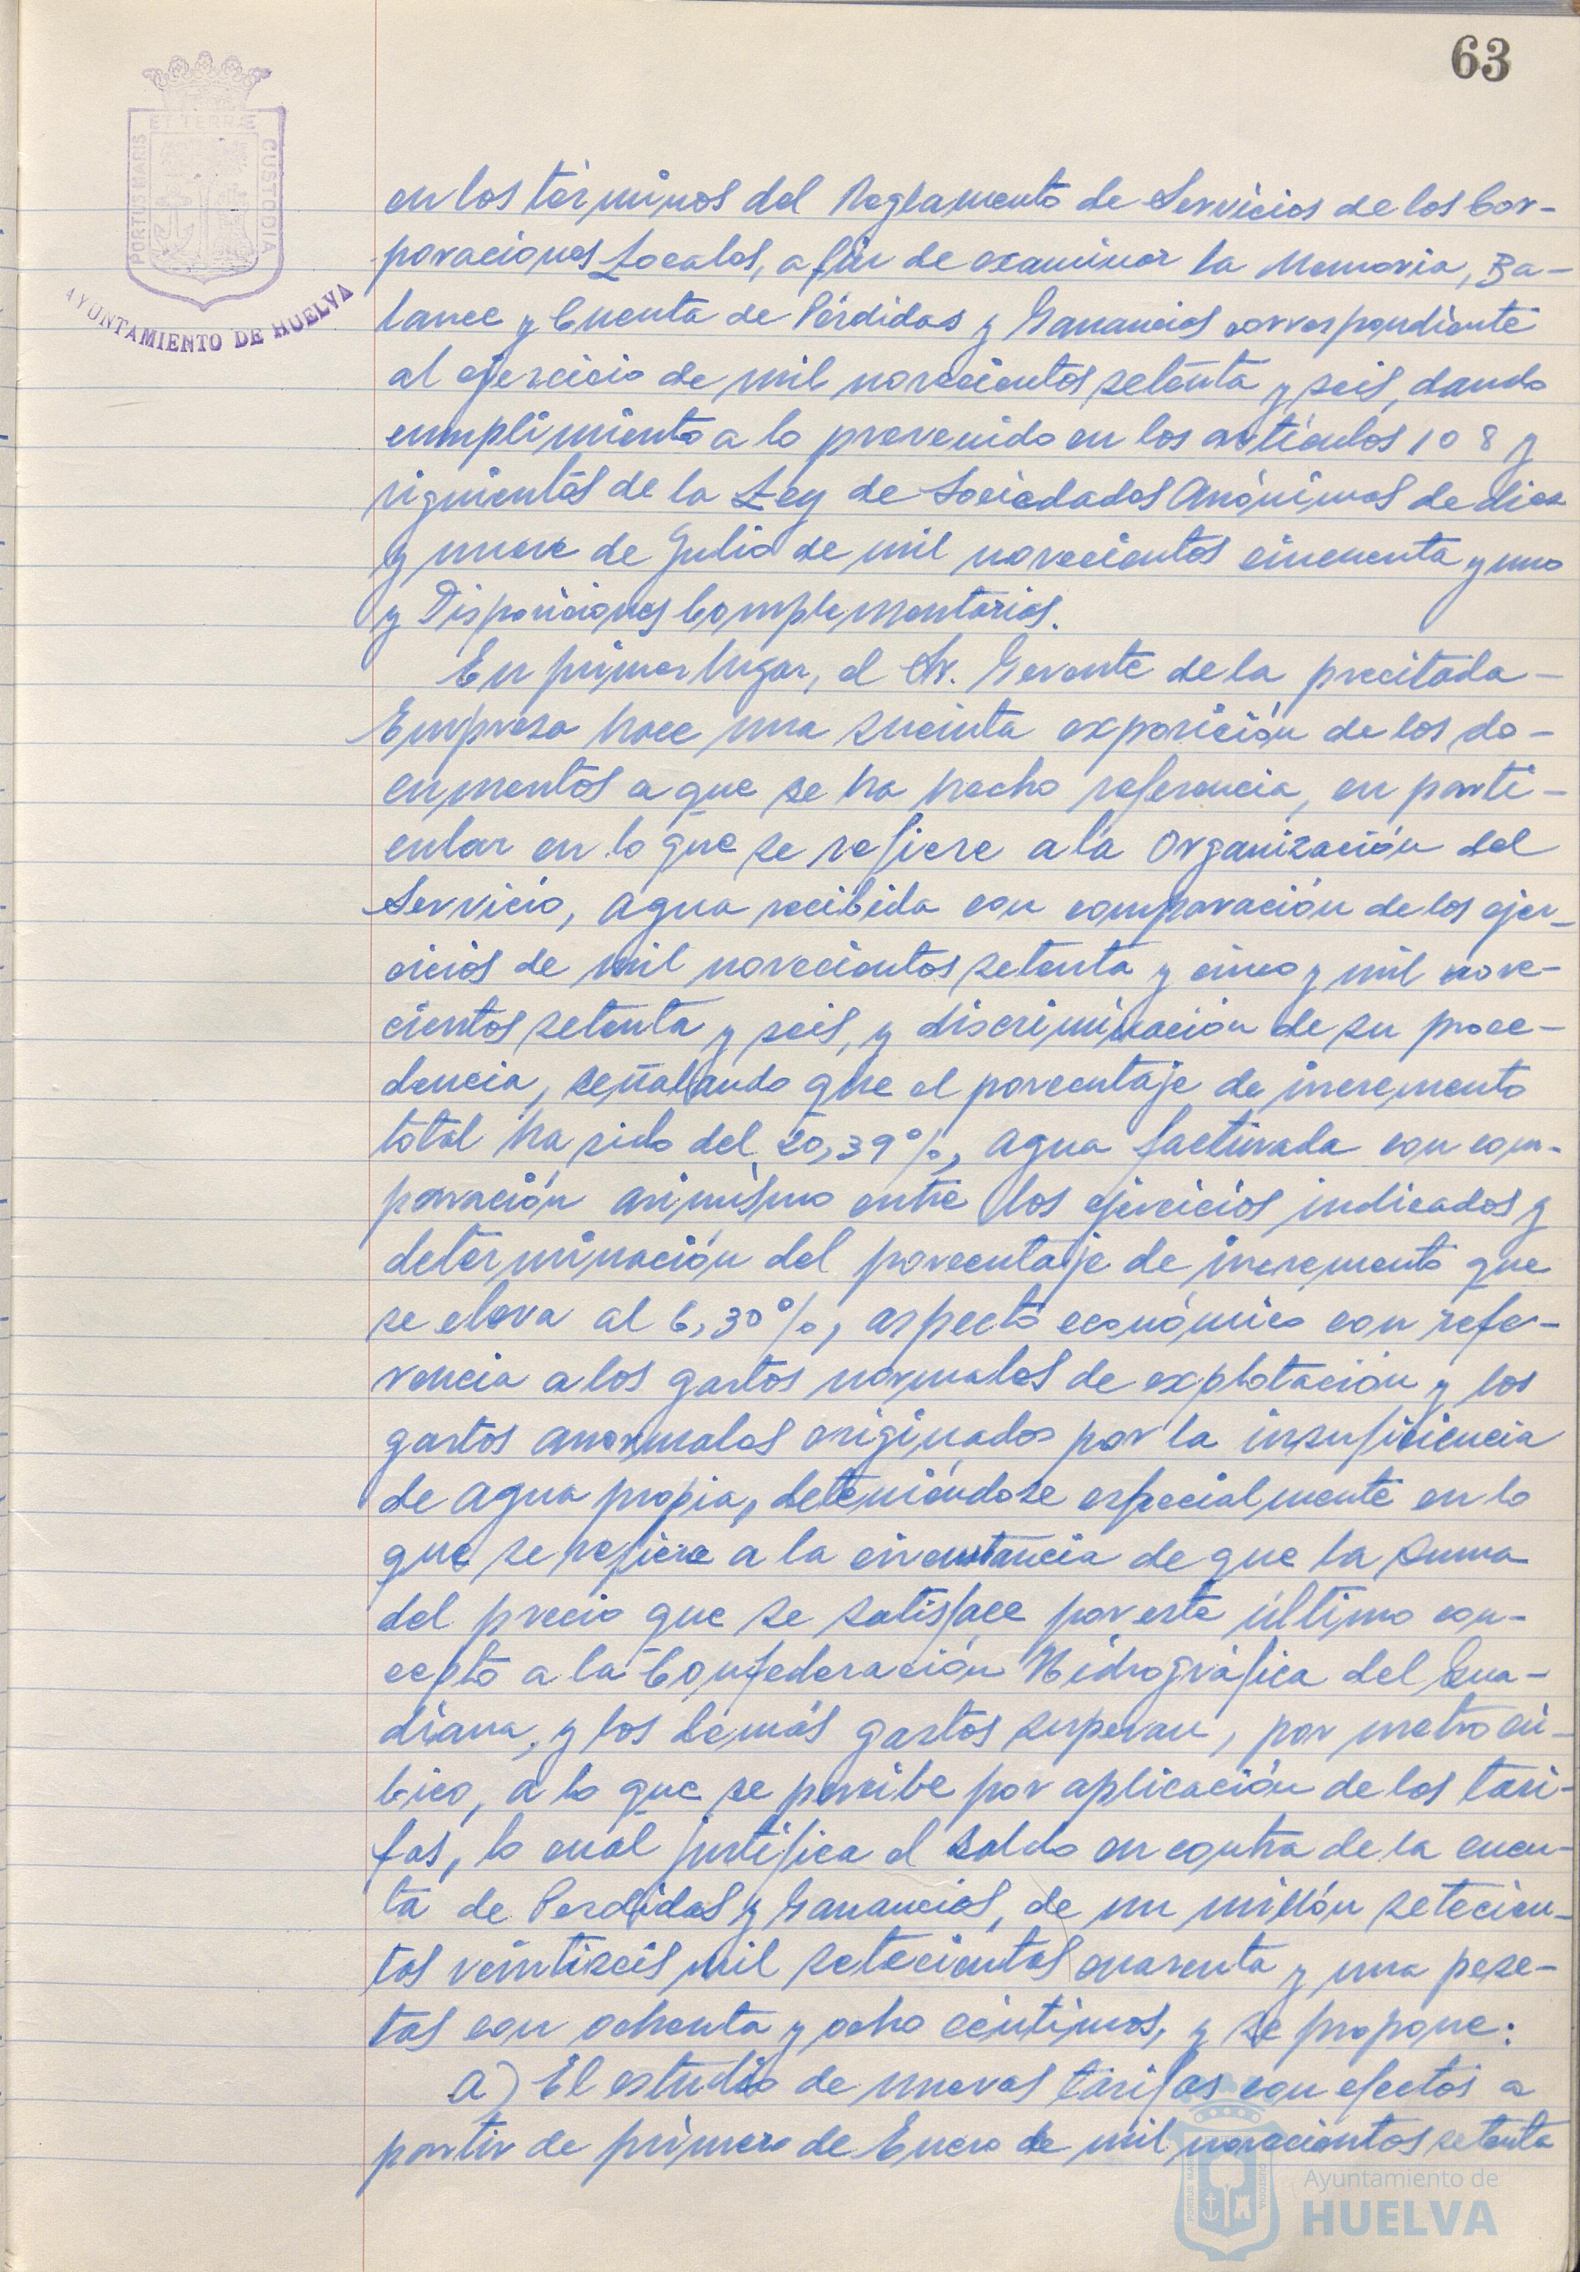 63
PORTUS MARIS
ET TERRÆ
CUSTODIA
AYUNTAMIENTO DE HUELVA
en los términos del Reglamento de Servicios de las Cor-
poraciones Locales, a fin de examinar la Memoria, Ba-
lance y Cuenta de Pérdidas y Ganancias correspondiente
al ejercicio de mil novecientos setenta y seis, dando
cumplimiento a lo prevenido en los artículos 108 y
siguientes de la Ley de Sociedades Anónimas de diez
y nueve de Julio de mil novecientos cincuenta y uno
y Disposiciones Complementarias.
En primer lugar, el Sr. Gerente de la precitada -
Empresa hace una sucinta exposición de los do-
cumentos a que se ha hecho referencia, en parti-
cular en lo que se refiere a la Organización del
Servicio, agua recibida con comparación de los ejer-
cicios de mil novecientos setenta y cinco y mil nove-
cientos setenta y seis, y discriminación de su proce-
dencia, señalando que el porcentaje de incremento
total ha sido del 20,39%, agua facturada con com-
paración asimismo entre los ejercicios indicados y
determinación del porcentaje de incremento que
se eleva al 6,30%, aspecto económico con refe-
rencia a los gastos normales de explotación y los
gastos anormales originados por la insuficiencia
de agua propia, deteniéndose especialmente en lo
que se refiere a la circunstancia de que la suma
del precio que se satisface por este último con-
cepto a la Confederación Hidrográfica del Gua-
diana, y los demás gastos superan, por metro cú-
bico, a lo que se percibe por aplicación de las tari-
fas, lo cual justifica el saldo en contra de la cuen-
ta de Perdidas y Ganancias, de un millón setecien-
tas veintiseis mil setecientas cuarenta y una pese-
tas con ochenta y ocho céntimos, y se propone:
a) El estudio de nuevas tarifas con efectos a
partir de primero de Enero de mil novecientos setenta
Ayuntamiento de
HUELVA